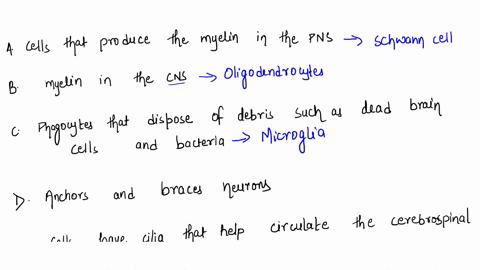 A. Cells that produce the myelin in the PNS → Schwann cell
B. myelin in the CNS → Oligodendrocytes
C. Phagocytes that dispose of debris such as dead brain
cells and bacteria → Microglia
D. Anchors and braces neurons
cells have cilia that help circulate the cerebrospinal